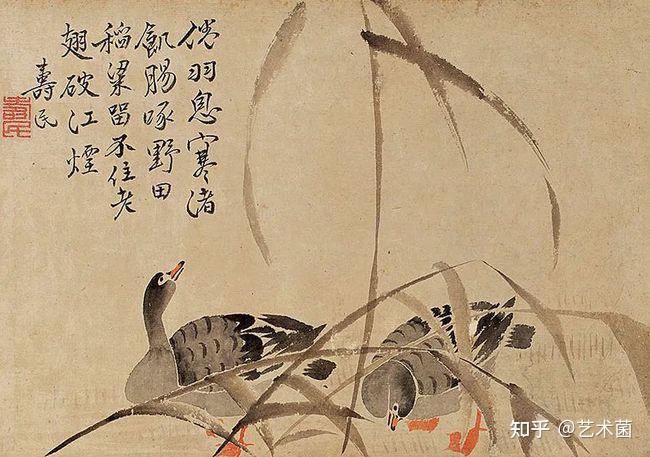 倦羽息寒渚
飢腸啄野田
稻粱留不住老
翅破江煙
壽民
壽民
知乎 @艺术菌